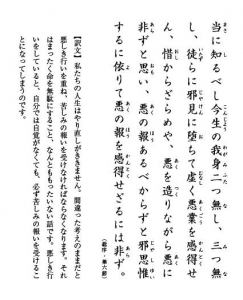 当に知るべし今生の我身二つ無し、三つ無
し、徒らに邪見に堕ちて虚く悪業を感得せ
ん、惜からざらめや、悪を造りながら悪に
非ずと思い、悪の報あるべからずと邪思惟
するに依りて悪の報を感得せざるには非ず。
(総序・第六節)
【訳文】私たちの人生はやり直しがききません。間違った考えのままだと
悪しき行いを重ね、苦しみの報いを受けなければならなくなります。それ
はまったく命を無駄にすること、なんともったいない話です。悪しき行
いをしていると、自分では自覚がなくても、必ず苦しみの報いを受けるこ
とになってしまうのです。